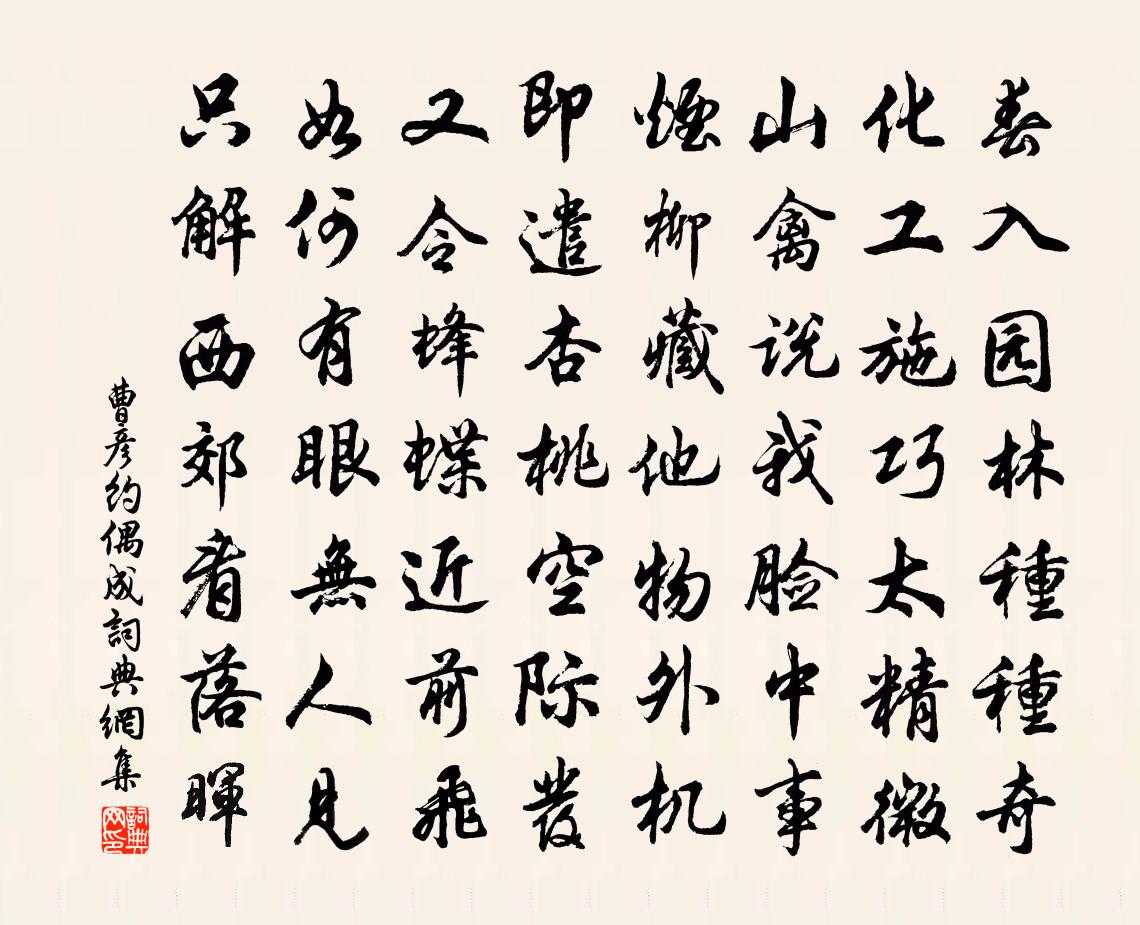 春入园林種種奇
化工施巧太精微
山禽说我脸中事
煙柳藏他物外机
即遣杏桃空际發
又令蜂蝶近前飛
如何有眼無人見
只解西郊看落暉
曹彦约偶成詞典網集
詞典网印